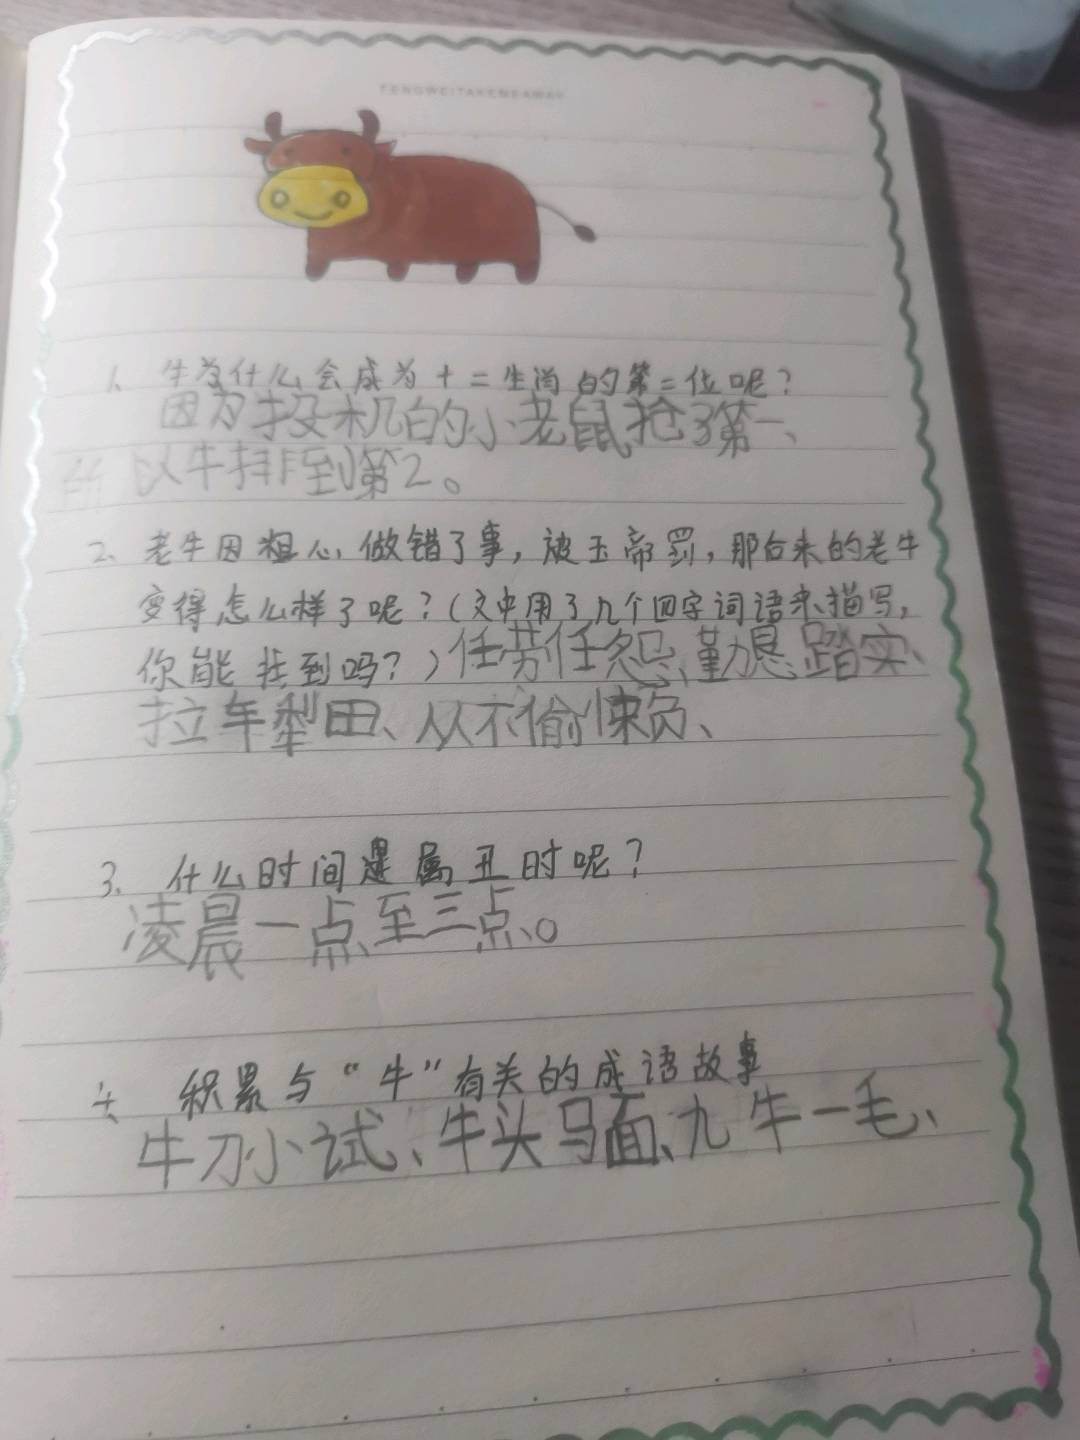 TENGWEITAKEMEAWAY
1、牛为什么会成为十二生肖的第二位呢？
因为投机的小老鼠抢了第一、
所以牛排到第2。
2、老牛因粗心做错了事，被玉帝罚，那后来的老牛
变得怎么样了呢？（文中用了几个四字词语来描写，
你能找到吗？）任劳任怨、勤恳踏实、
拉车犁田、从不偷懒、
3、什么时间是属丑时呢？
凌晨一点至三点。
4、积累与“牛”有关的成语故事
牛刀小试、牛头马面、九牛一毛、